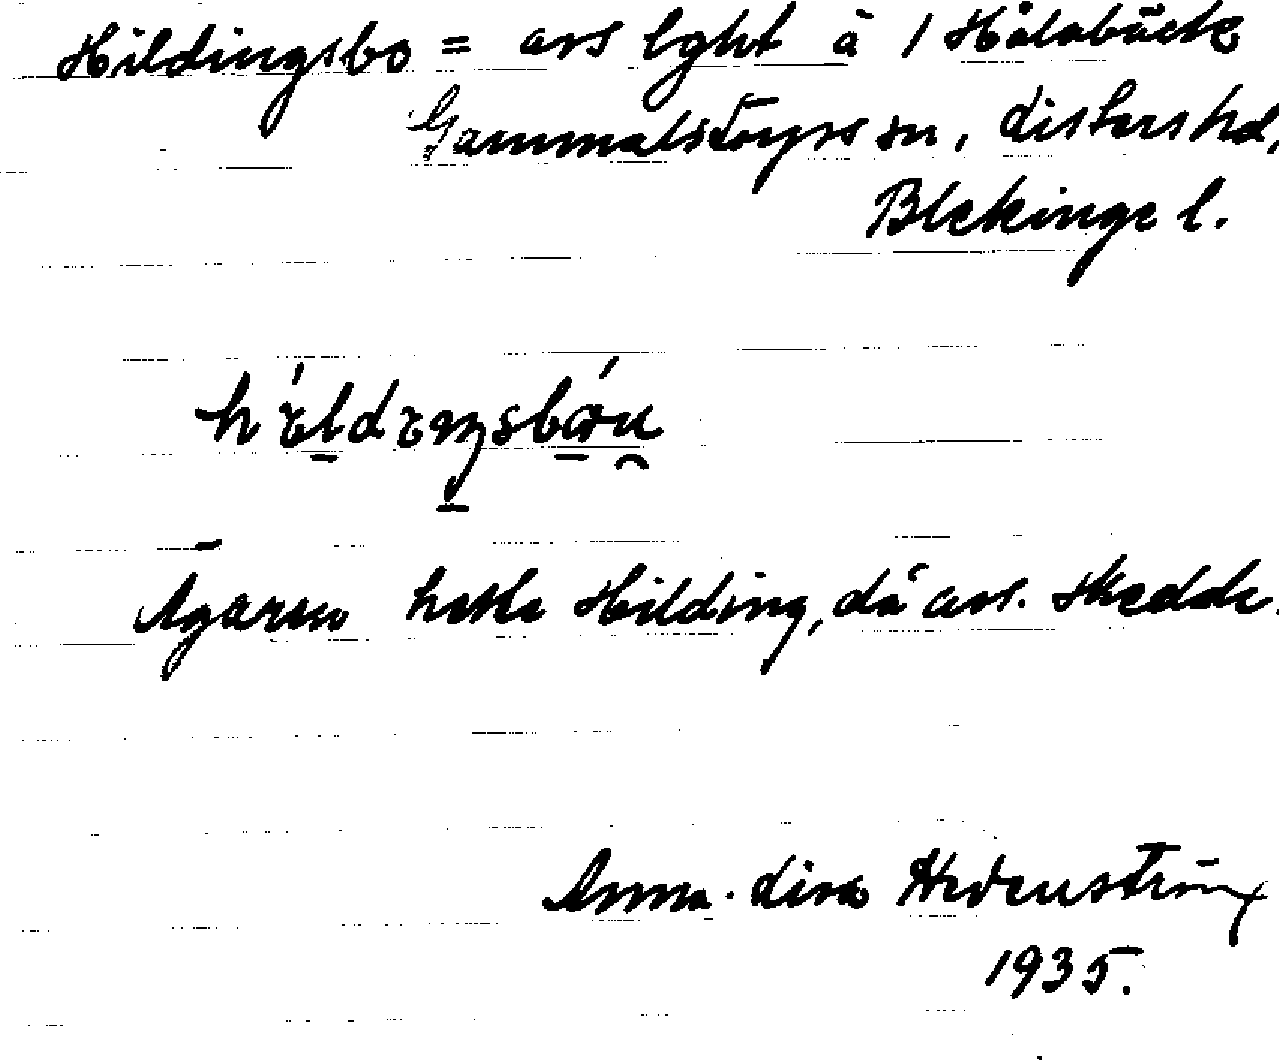 Hildingsbo = avs lght å 1 Hålabäck
Gammalstorps sn, Listers hd,
Blekinge l.
Ägaren hette Hilding, då avs. skedde.
Anna-Lisa Hedenström
1935.